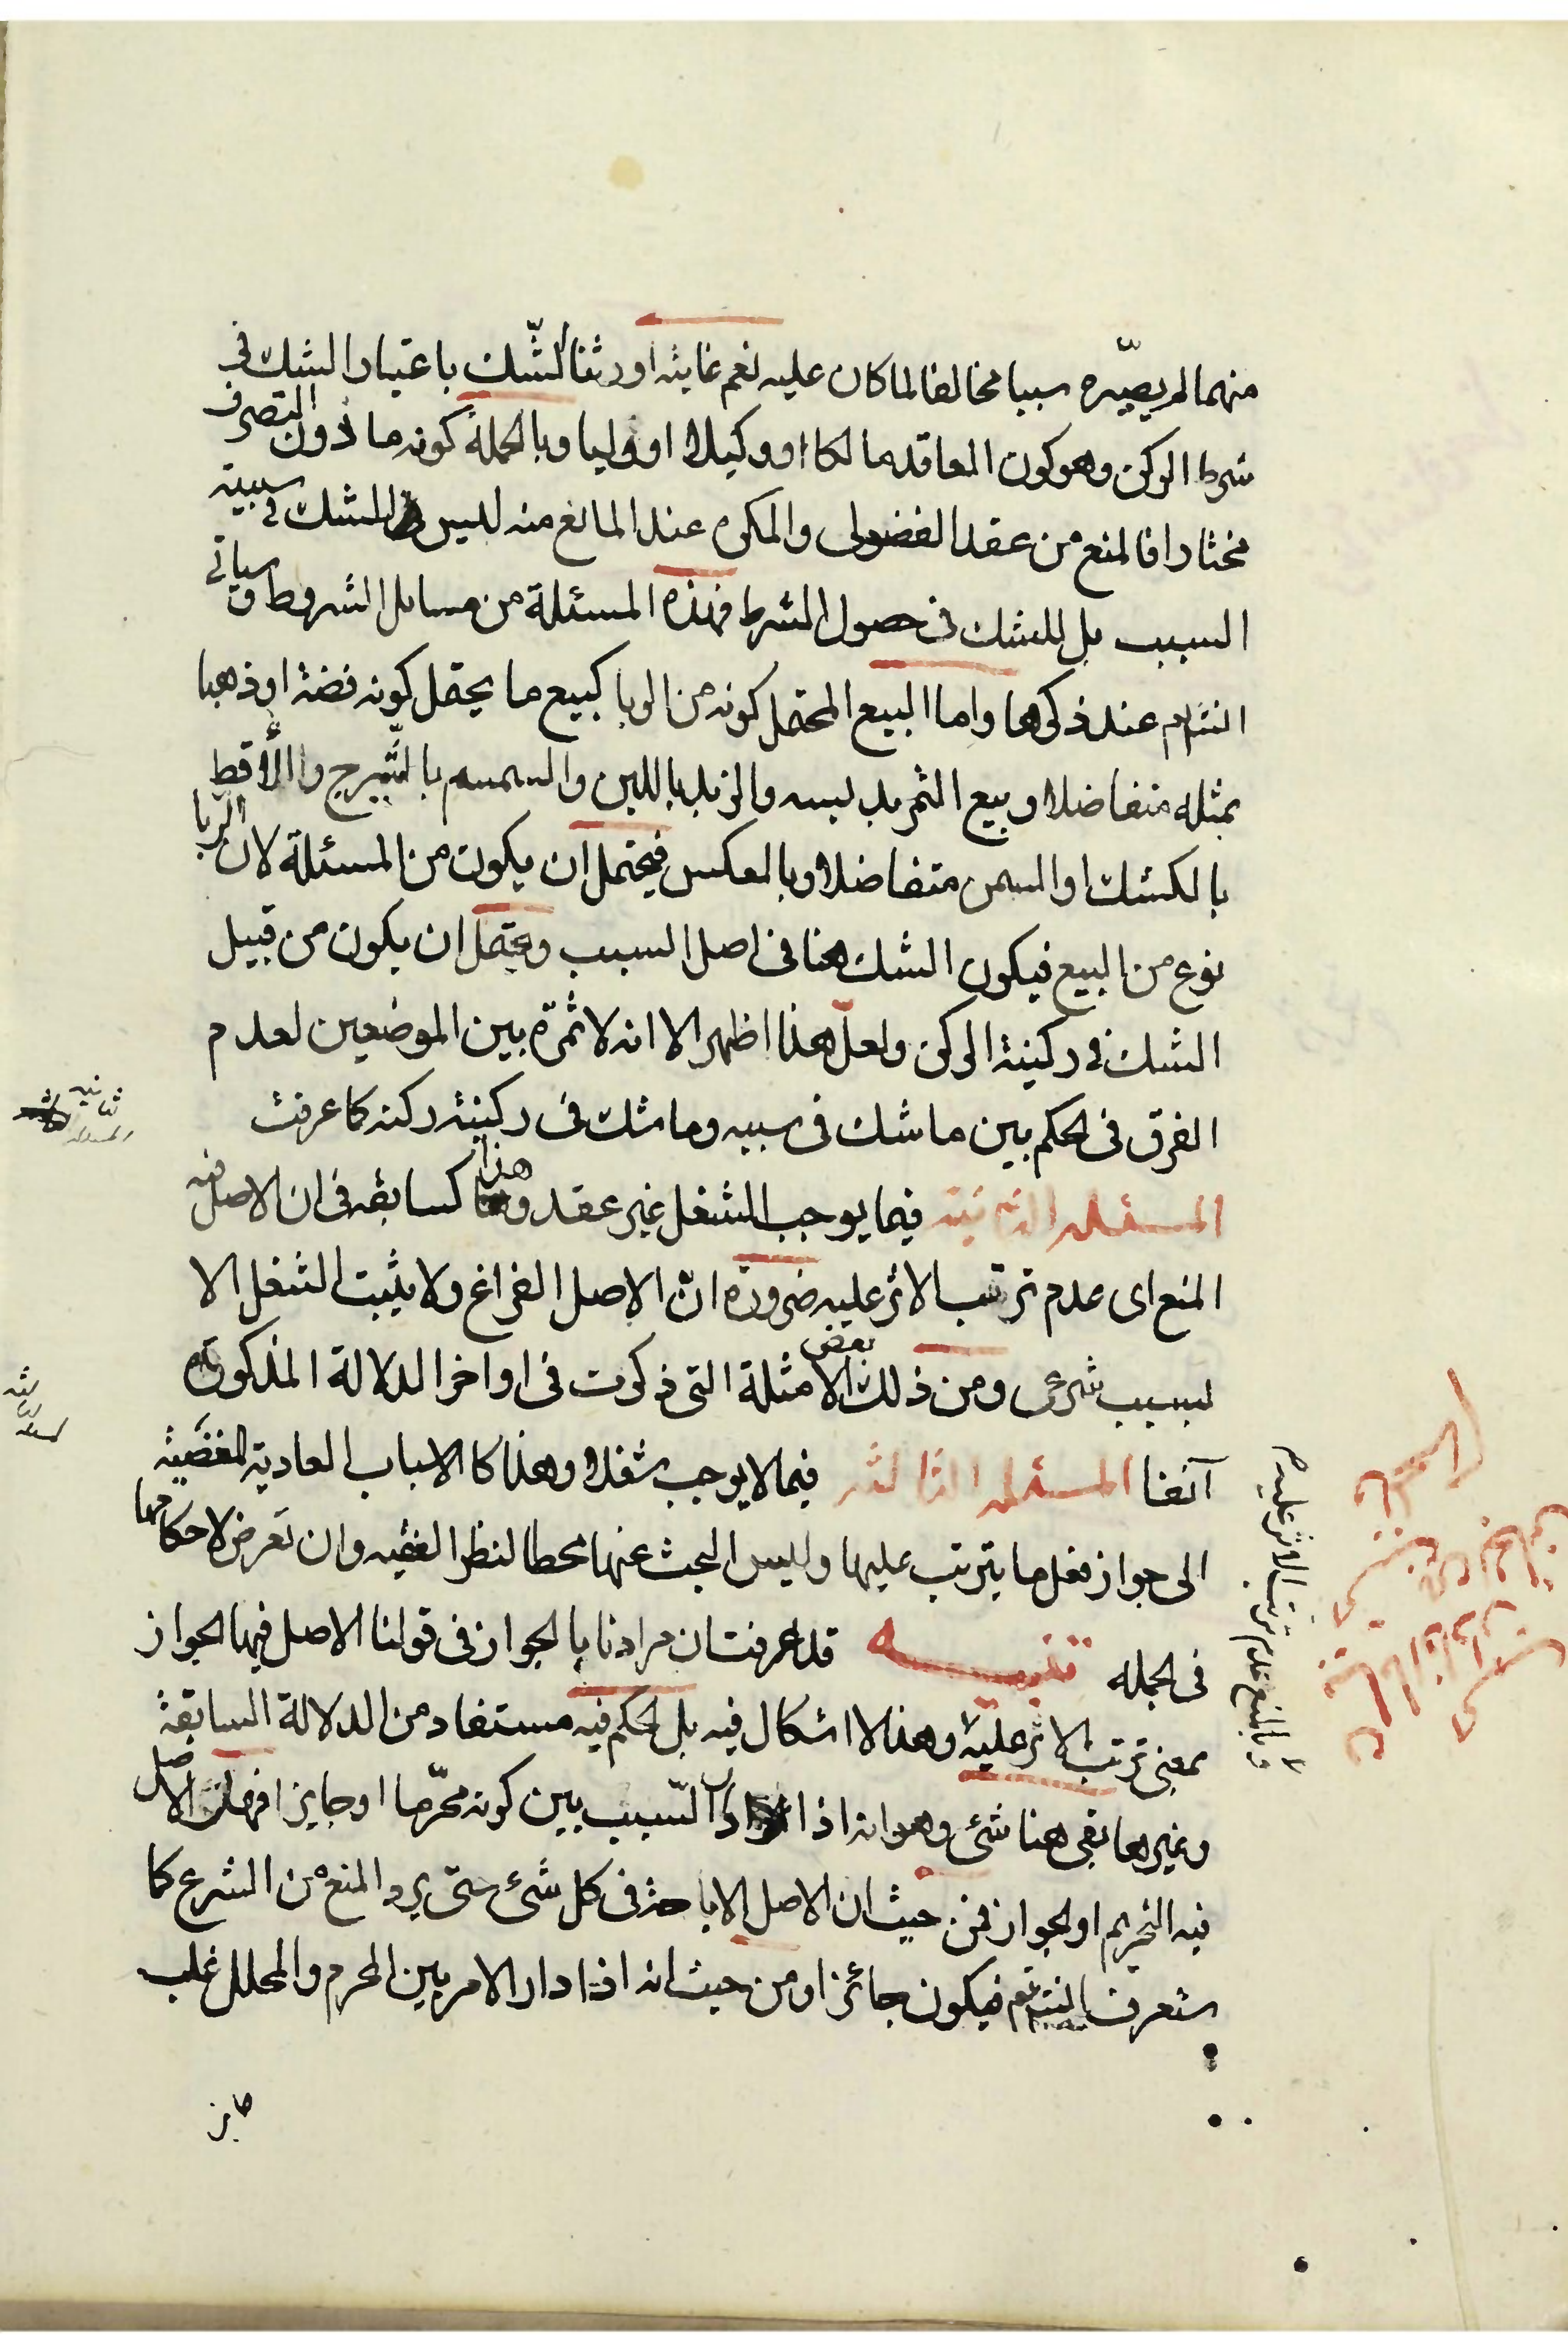 منهما لم يصيّره سببا مخالفا لما كان عليه نعم غايته اورثنا الشّك باعتبار الشك في
شرط الركن وهو كون العاقد مالكا او وكيلا او وليا وبالجملة كونه ماذون التصرف
مختارا فالمنع من عقد الفضولى والمكره عند المانع منه ليس للشك في سببية
السبب بل للشك فى حصول الشرط فهذه المسئلة من مسايل الشروط وسياتي
انشاء عند ذكرها واما البيع المحتمل كونه من الربا كبيع ما يحتمل كونه فضة او ذهبا
بمثله متفاضلا وبيع التمر بدبسه والزبد باللبن والسمسم بالشّيرج والأقط
بالكشك او السمن متفاضلا وبالعكس فيحتمل ان يكون من المسئلة لان الربا
نوع من البيع فيكون الشك هنا فى اصل السبب ويحتمل ان يكون من قبيل
الشك في ركنية الركن ولعلّ هذا اظهر الا انه لا ثمرة بين الموضعين لعدم
الفرق فى الحكم بين ما شك فى سببه وما شك فى ركنية ركنه كما عرفت
المسئله الثانيّة فيما يوجب الشغل غير عقد وهذا كسابقه فى ان الاصل فيه
المنع اى عدم ترتب الاثر عليه ضرورة انّ الاصل الفراغ ولا يثبت الشغل الا
لسبب شرعى ومن ذلك بعض الامثلة التى ذكرت فى اواخر الدلالة المذكورة
آنفا المسئله الثالثه فيما لا يوجب شغلا وهذا كالاسباب العادية المفضية
الى جواز فعل ما يترتب عليها وليس البحث عنها محطا لنظر الفقيه وان تعرض لاحكامها
فى الجمله تنبيه قد عرفت ان مرادنا بالجواز فى قولنا الاصل فيها الجواز
بمعنى ترتب الاثر عليه وهذا لا اشكال فيه بل الحكم فيه مستفاد من الدلالة السابقة
وغيرها بقى هنا شئ وهو انه اذا دار السّبب بين كونه محرّما او جايزا فهل الاصل
فيه التحريم او الجواز فمن حيث ان الاصل الاباحة فى كل شئ حتى يرد المنع من الشرع كما
ستعرف انشاء فيكون جائزا ومن حيث انه اذا دار الامر بين المحرم والمحلل غلب
وبالمنع عدم ترتب الاثر عليه
ثانيه
المسئله